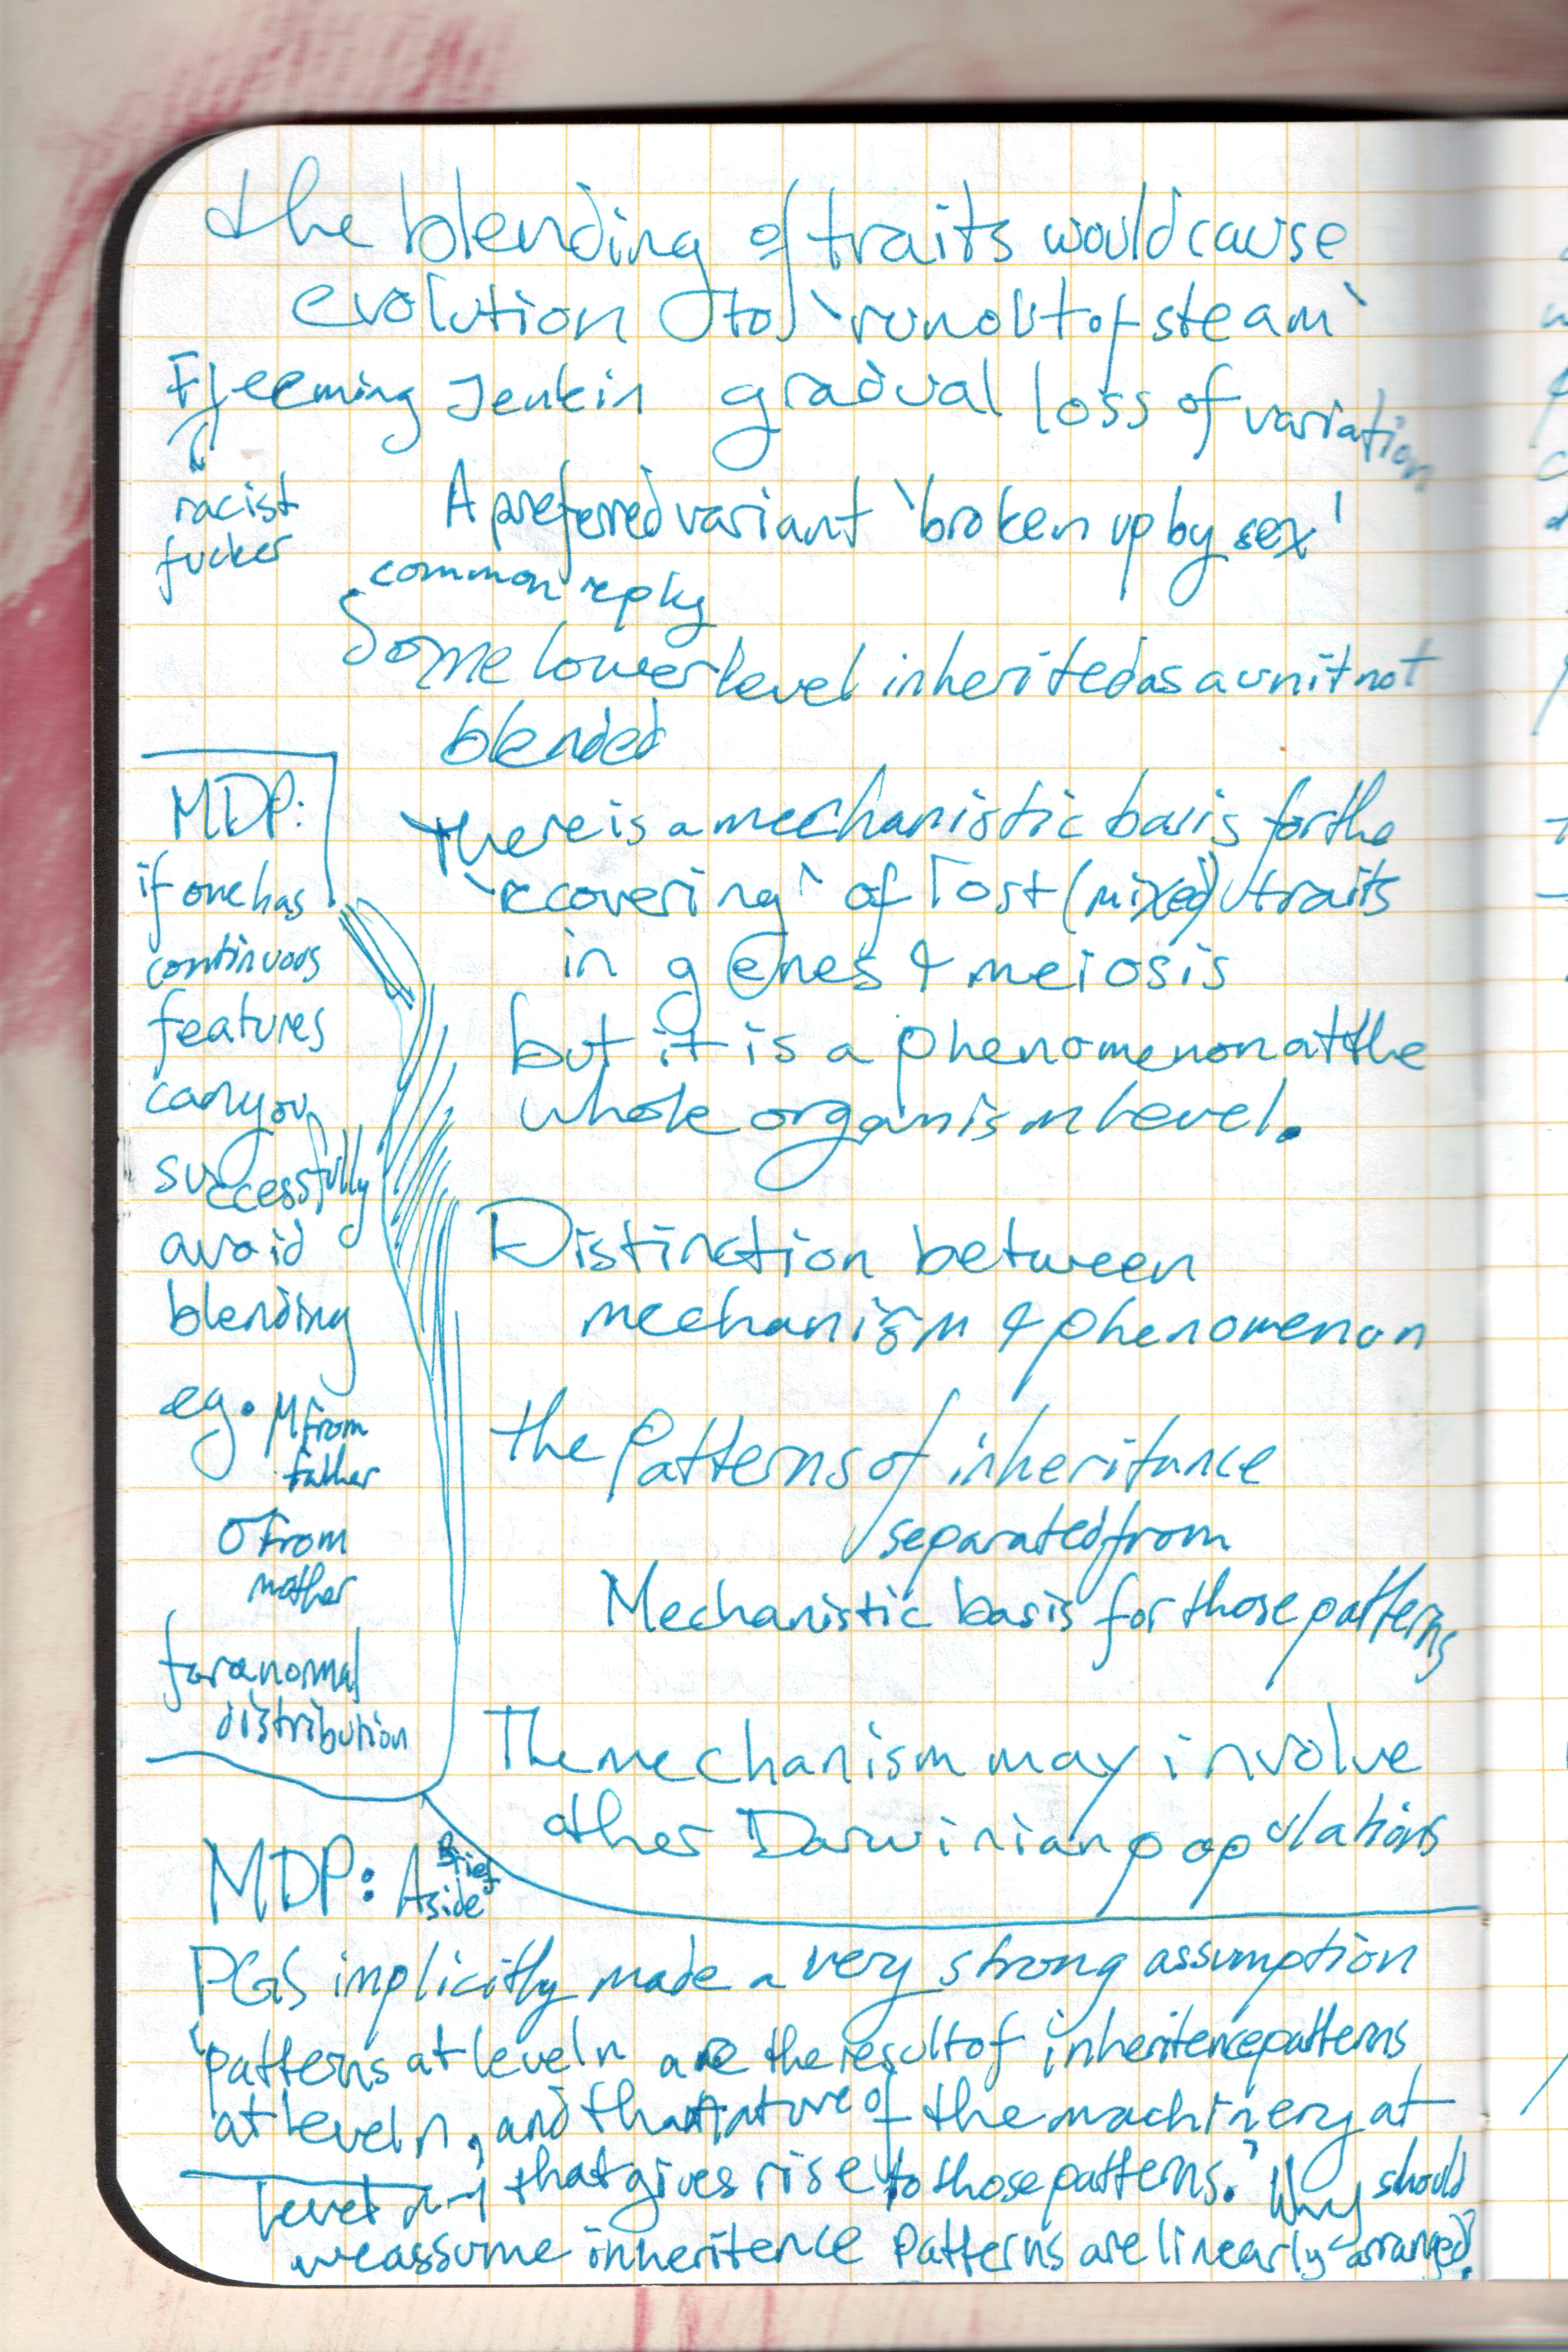 the blending of traits would cause
evolution to 'run out of steam'
Fleeming Jenkin gradual loss of variation
racist
fucker
A preferred variant 'broken up by sex'
common reply
Some lower level inherited as a unit not
blended
There is a mechanistic basis for the
'recovering' of lost (mixed) traits
in genes & meiosis
but it is a phenomenon at the
whole organism level.
Distinction between
mechanism & phenomenon
the Patterns of inheritance
separated from
Mechanistic basis for those patterns
The mechanism may involve
other Darwinian populations
MDP:
if one has
continuous
features
can you
successfully
avoid
blending
eg. μ from
father
σ from
mother
for a normal
distribution
MDP: A Brief
Aside
PGS implicitly made a very strong assumption
'patterns at level n are the result of inheritence patterns
at level n, and that nature of the machinery at
level n-1 that gives rise to those patterns.' Why should
we assume inheritence patterns are linearly arranged?